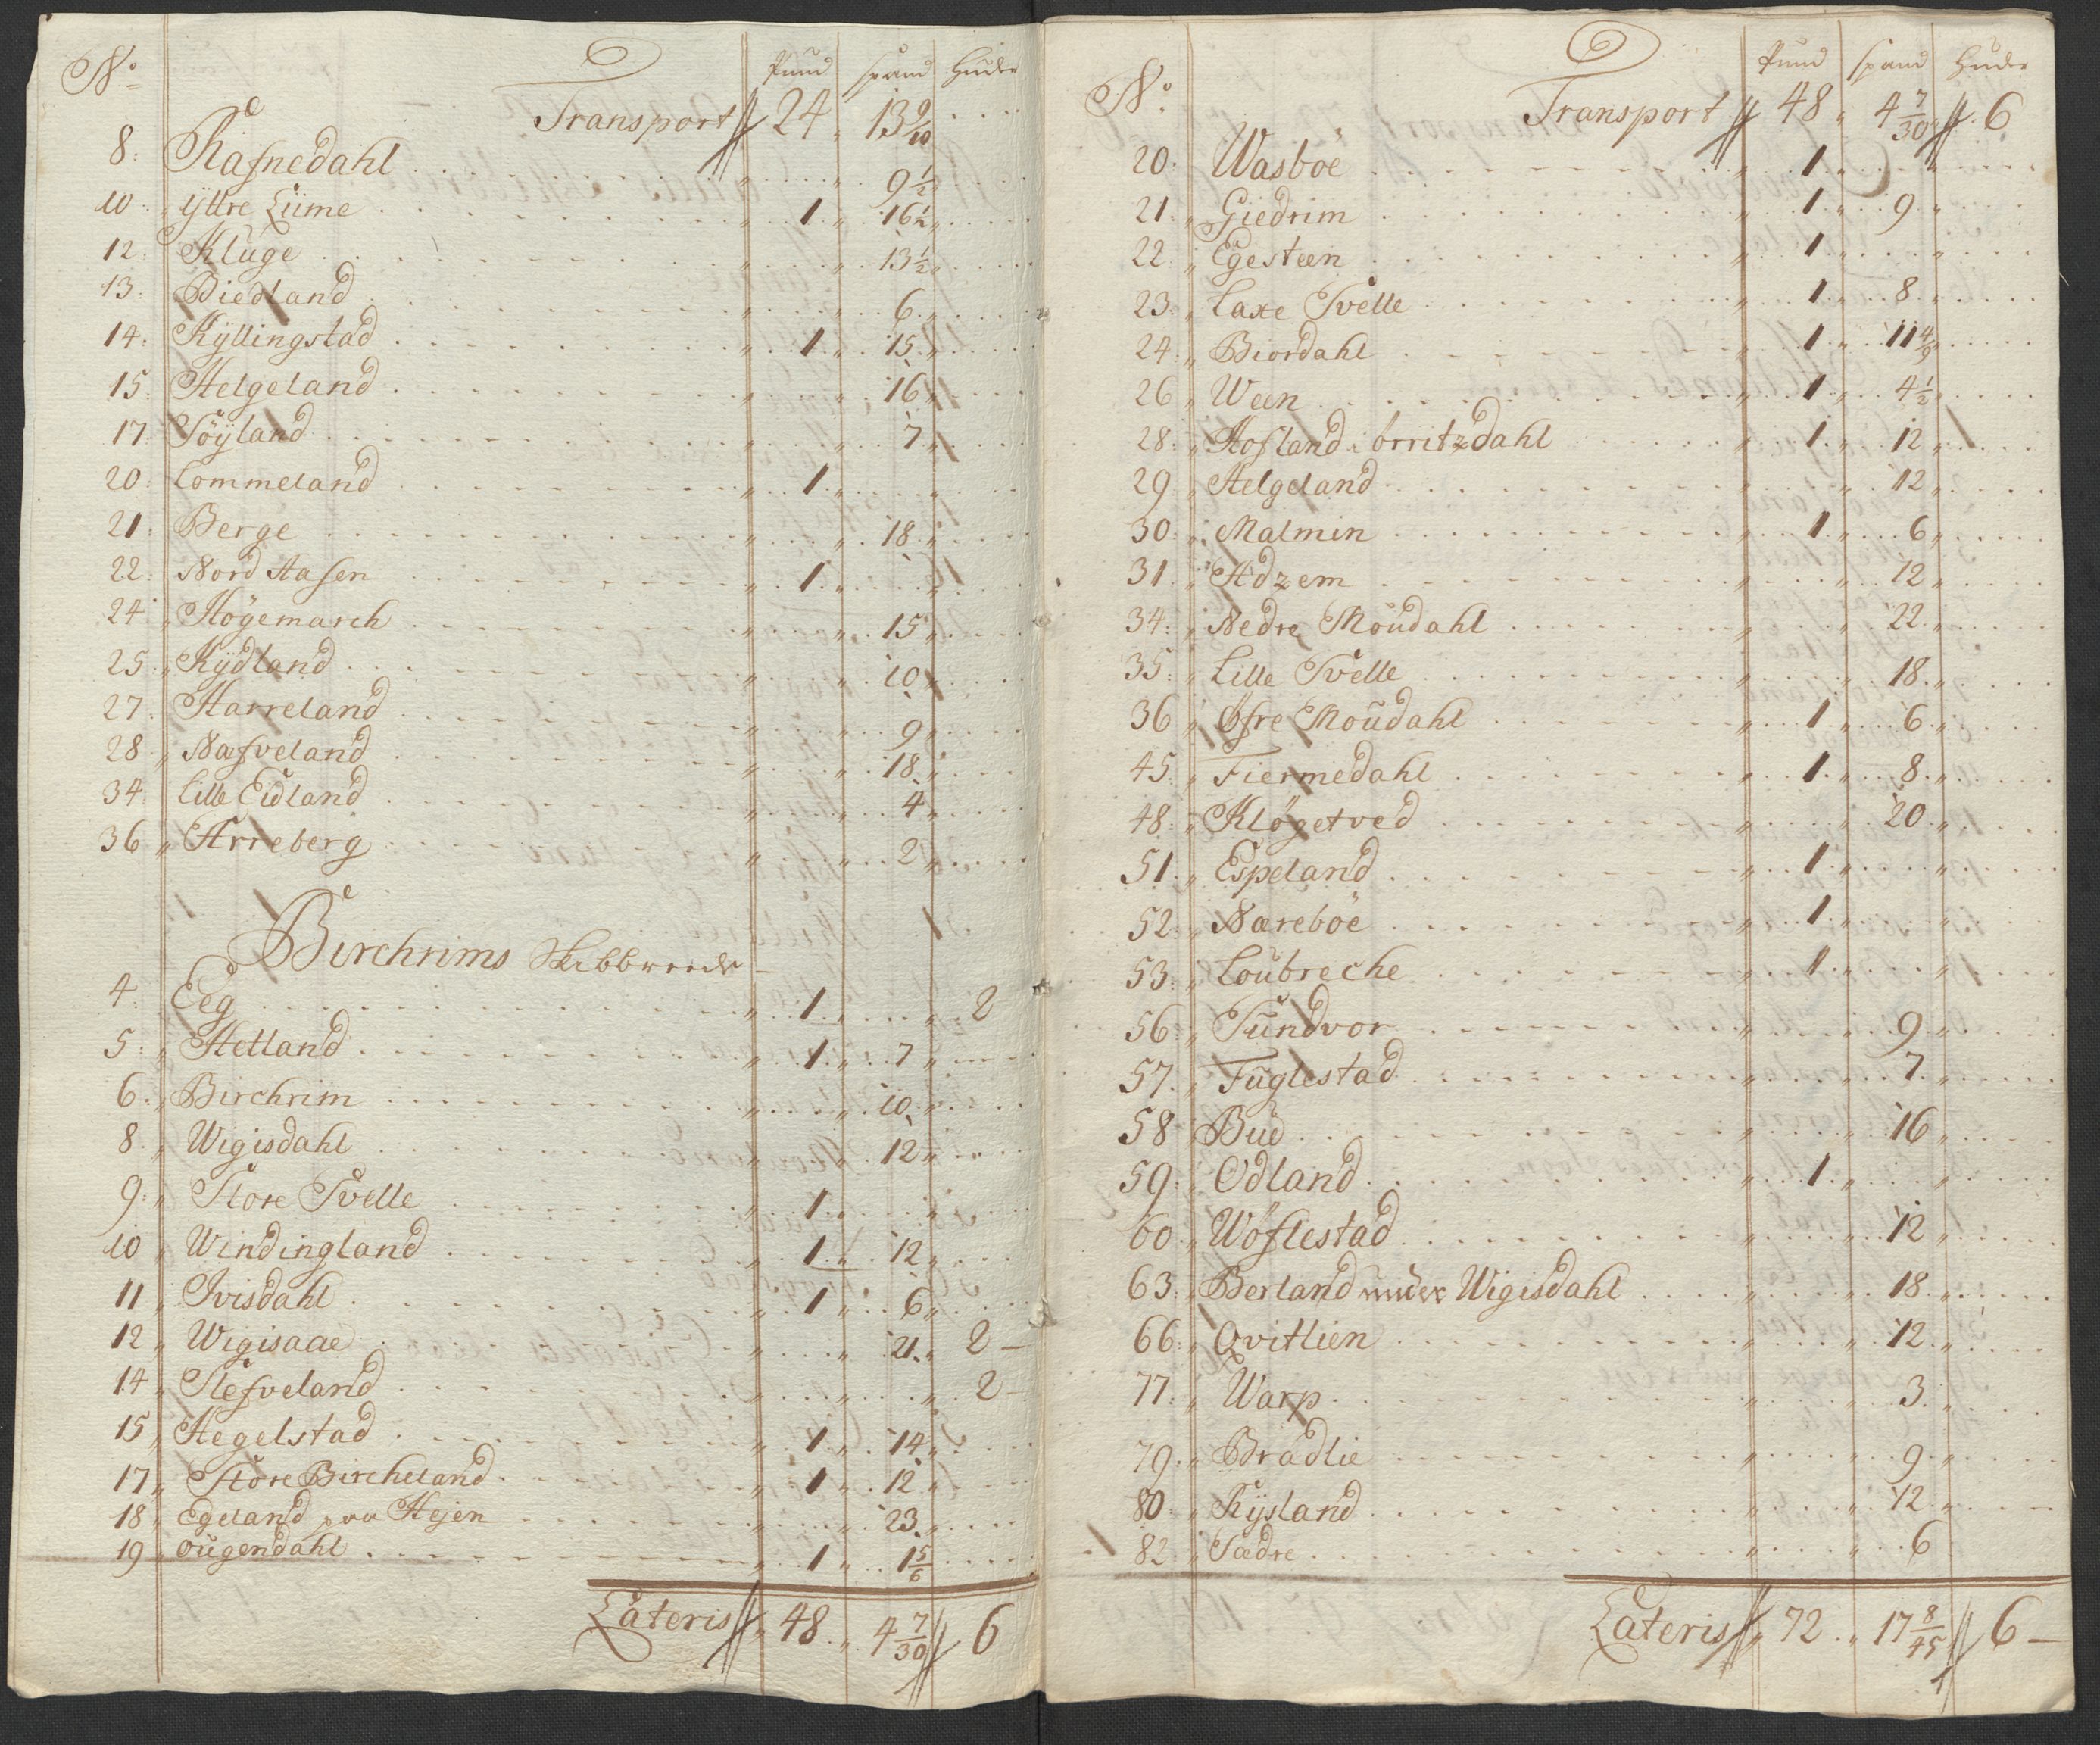 No Pund Spand Huder
Transport 24 13 9/10
8: Rafnedahl 9 1/2
10 Yttre Lüme 1 16 1/2
12: Klüge 13 1/2
13: Biedland 6
14: Kyllingstad 1 15
15 Helgeland 16
17: Töyland 7
20: Lommeland 1
21: Berge 18
22: Nord Aasen 1
24 Högemarch 15
25 Kydland 10
27: Harreland 9
28 Næsveland 18
34 Lille Eidland 4
36 Arreberg 2
Birchrims Skibbrede
4: Eeg 1 2
5: Hetland 1 7
6: Birchrim 10
8: Wigisdahl 12
9: Store Svelle 1
10 Windingland 1 12
11 Ivisdahl 1 6
12 Wigisaae 21 2
14 Slefveland 2
15 Hegelstad 1 14
17 Store Bircheland 1 12
18 Egeland paa Hejen 23
19 ougendahl 1 1 5/6
Lateris 48 4 7/30 6
No Pund Spand Huder
Transport 48 4 7/30 6
20: Wasboe 1
21: Giedrim 1 9
22: Egesteen 1
23: Laxe Svelle 1 8
24: Biordahl 1 11 4/9
26 Ween 1 4 1/2
28: Hofland i örritzdahl 1 12
29 Helgeland 12
30: Malmin 1 6
31 Adzem 12
34: Nedre Moudahl 22
35: Lille Svelle 18
36 Øfre Moudahl 1 6
45: Fiermedahl 1 8
48: Klögetved 20
51: Espeland 1
52: Næreböe 1
53: Loubreche 1
56: Sundvor 9
57: Fuglestad 7
58 Bue 16
59: Odland 1
60: Wöflestad 12
63: Berland under Wigisdahl 18
66: Qvitlien 12
77: Warp 3
79: Bradlie 9
80: Rysland 12
82: Sædre 6
Lateris 72 17 8/45 6